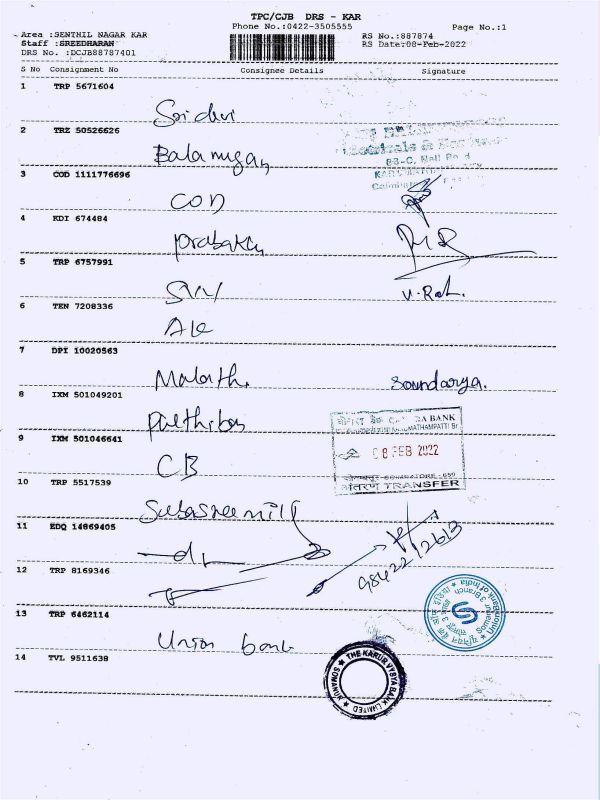 TPC/CJB DRS - KAR
Phone No.:0422-3505555
Page No.:1
Area :SENTHIL NAGAR KAR
Staff :SREEDHARAN
DRS No. :DCJB88787401
RS No.:887874
RS Date:08-Feb-2022
S No Consignment No Consignee Details Signature
1 TRP 5671604
Sridevi
2 TRZ 50526626
Balamugan
83-C, Mall Road
3 COD 1111776696
COD
4 KDI 674484
Prabaku
5 TRP 6757991
V. Rat.
6 TEN 7208336
AK
7 DPI 10020563
Malathi
Soundarya.
8 IXM 501049201
Parthiban
BANK
9 IXM 501046641
CB
08 FEB 2022
10 TRP 5517539
अंतरण TRANSFER
Subasree mill
11 EDQ 14869405
98422 12613
12 TRP 8169346
13 TRP 6462114
Union bank
Union Bank of India
14 TVL 9511638
THE KARUR VYSYA BANK LIMITED
SOMANUR